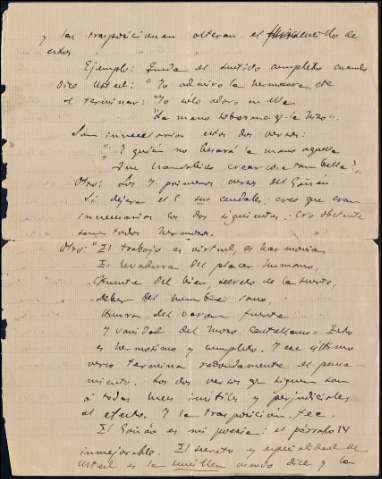 y las trasposiciones alteran el de
estos
Ejemplo: Queda el sentido completo cuando
dice usted: "Yo admiro la hermosura, etc
al terminar: "Yo sólo adoro en ella
"La mano soberana q. la hizo".
Son innecesarios estos dos versos:
"¿Y quién no besará la mano aquella
Que crear cosa tan bella?".
Otro: Los 4 primeros versos del
Si dejara el 5 sus caudales, creo que eran
innecesarios los dos siguientes. No obstante
son todos hermosos.
Otro: "El trabajo es virtud, es harmonía
Es levadura del placer humano,
Fuente del bien, secreto de la suerte,
deber del hombre sano,
Honra del varon fuerte
Y vanidad del mozo castellano. Esto
es hermosísimo y completo. Y ese último
verso termina redondamente el pensa-
miento. Los dos versos qe siguen son
á todas luces inútiles y perjudiciales
al efecto. Y la trasposición, fea.
El es mi poesía: el párrafo 14
inmejorable. El secreto es especialidad de
usted es la sencillez cuando dice y la